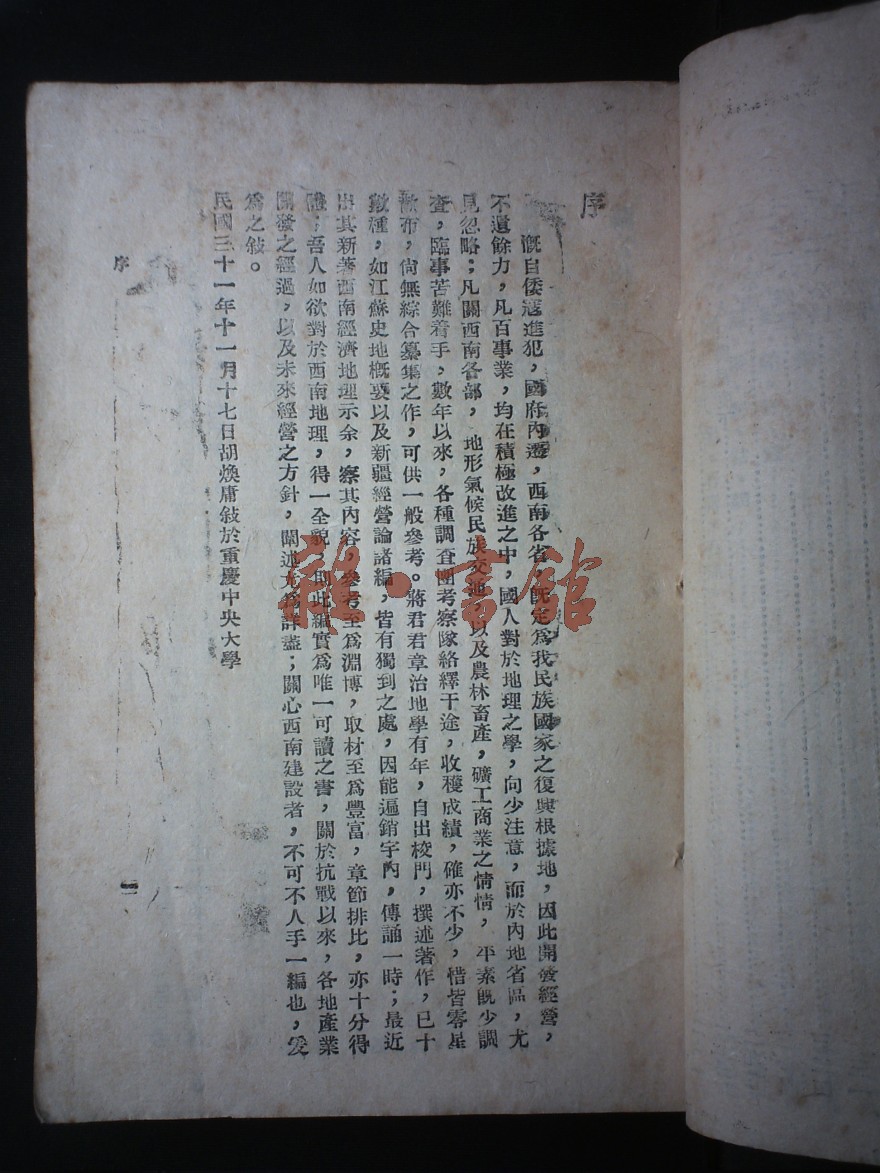 序
慨自倭寇進犯，國府內遷，西南各省，既定為我民族國家之復興根據地，因此開發經營，
不遺餘力，凡百事業，均在積極改進之中，國人對於地理之學，向少注意，而於內地省區，尤
見忽略；凡關西南各部，地形氣候民族交通，以及農林畜產，礦工商業之情情，平素既少調
查，臨事苦難着手，數年以來，各種調查團考察隊絡繹于途，收穫成績，確亦不少，惜皆零星
散布，尙無綜合纂集之作，可供一般參考。蔣君君章治地學有年，自出校門，撰述著作，已十
數種，如江蘇史地概要以及新疆經營論諸編，皆有獨到之處，因能遍銷宇內，傳誦一時；最近
出其新著西南經濟地理示余，察其內容，參考至為淵博，取材至為豐富，章節排比，亦十分得
體；吾人如欲對於西南地理，得一全貌，則此編實為唯一可讀之書，關於抗戰以來，各地產業
開發之經過，以及未來經營之方針，闡述尤為詳盡；關心西南建設者，不可不人手一編也，爰
為之敍。
民國三十一年十一月十七日胡煥庸敍於重慶中央大學
序
一
雜·書館